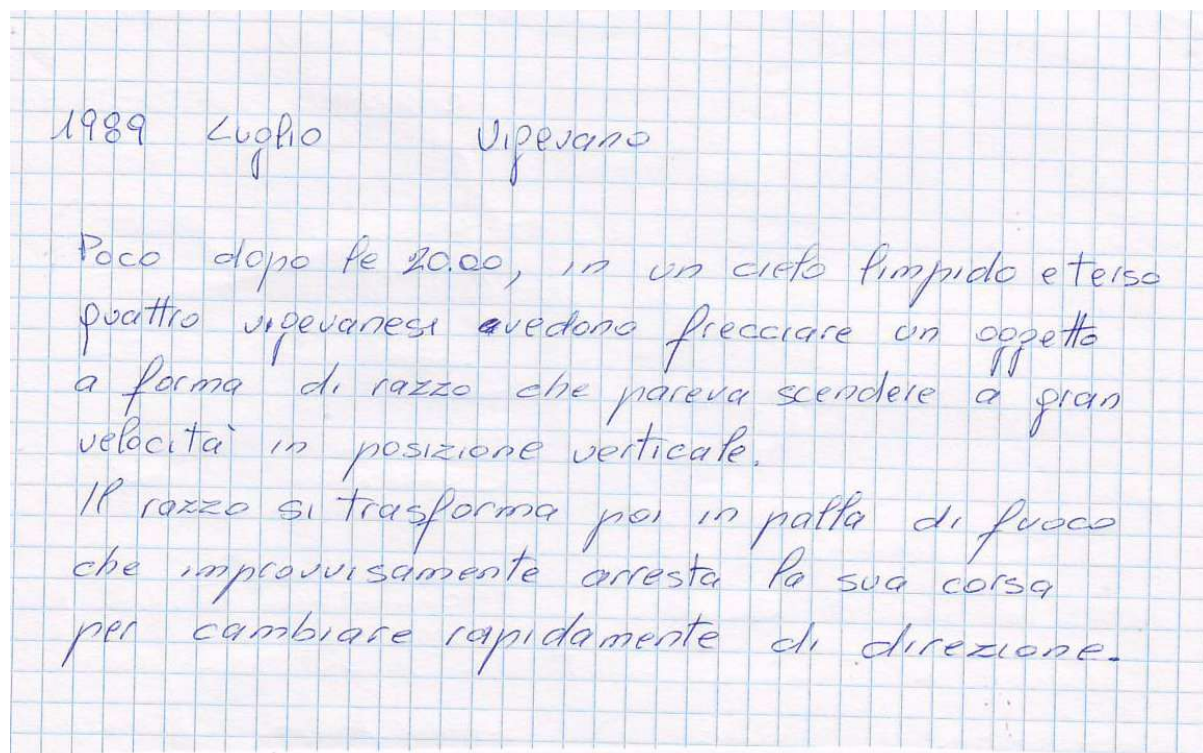 1989 Luglio Vigevano
Poco dopo le 20.00, in un cielo limpido e terso
quattro vigevanesi vedono frecciare un oggetto
a forma di razzo che pareva scendere a gran
velocità in posizione verticale.
Il razzo si trasforma poi in palla di fuoco
che improvvisamente arresta la sua corsa
per cambiare rapidamente di direzione.